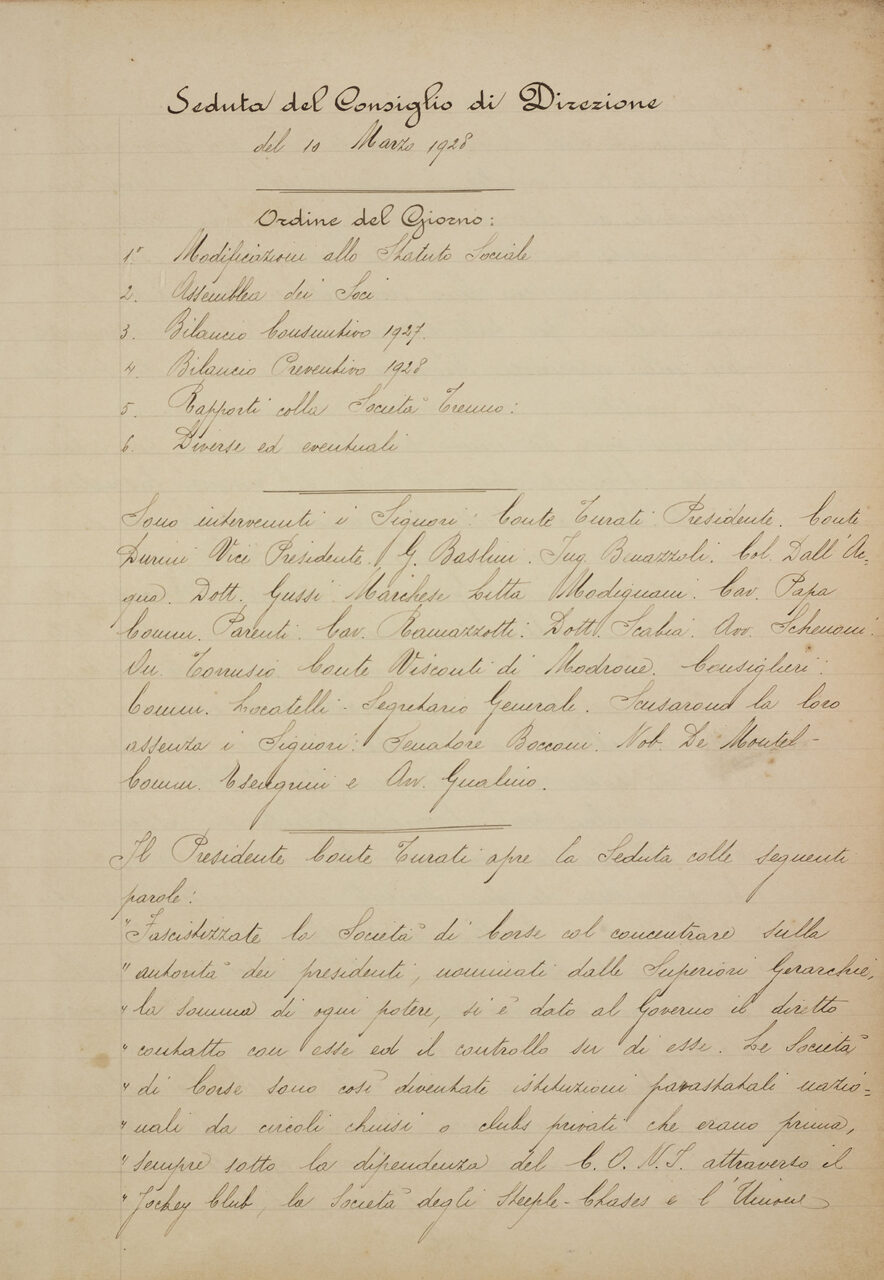 Seduta del Consiglio di Direzione
del 10 Marzo 1928
Ordine del Giorno:
1° Modificazioni allo Statuto Sociale
2. Assemblea dei Soci
3. Bilancio Consuntivo 1927.
4. Bilancio Preventivo 1928
5. Rapporti colla Società Trenno:
6. Diverse ed eventuali
Sono intervenuti i Signori: Conte Turati Presidente. Conte
Durini Vice Presidente, G. Baslini. Ing. Benazzoli. Col. Dall'Ac-
qua. Dott. Gussi Marchese Litta Modignani. Cav. Papa
Comm. Parenti. Cav. Ramazzotti. Dott. Scabia. Avv. Schenoni.
On. Torrusio Conte Visconti di Modrone. Consiglieri.
Comm. Locatelli - Segretario Generale. Scusarono la loro
assenza i Signori: Senatore Bocconi. Nob. De Montel -
Comm. Esengrini e Avv. Gualino.
Il Presidente Conte Turati apre la Seduta colle seguenti
parole:
"Fascistizzate le Società di Corse col concentrare sulla
" autorità dei presidenti, nominati dalle Superiori Gerarchie,
" la somma di ogni potere, si è dato al Governo il diretto
" contatto con esse ed il controllo su di esse. Le Società
" di Corse sono così diventate istituzioni parastatali nazio=
" nali da circoli chiusi o clubs privati che erano prima,
" sempre sotto la dipendenza del C.O.N.I. attraverso il
" Jockey Club, la Società degli Steeple-Chases e l'Unione